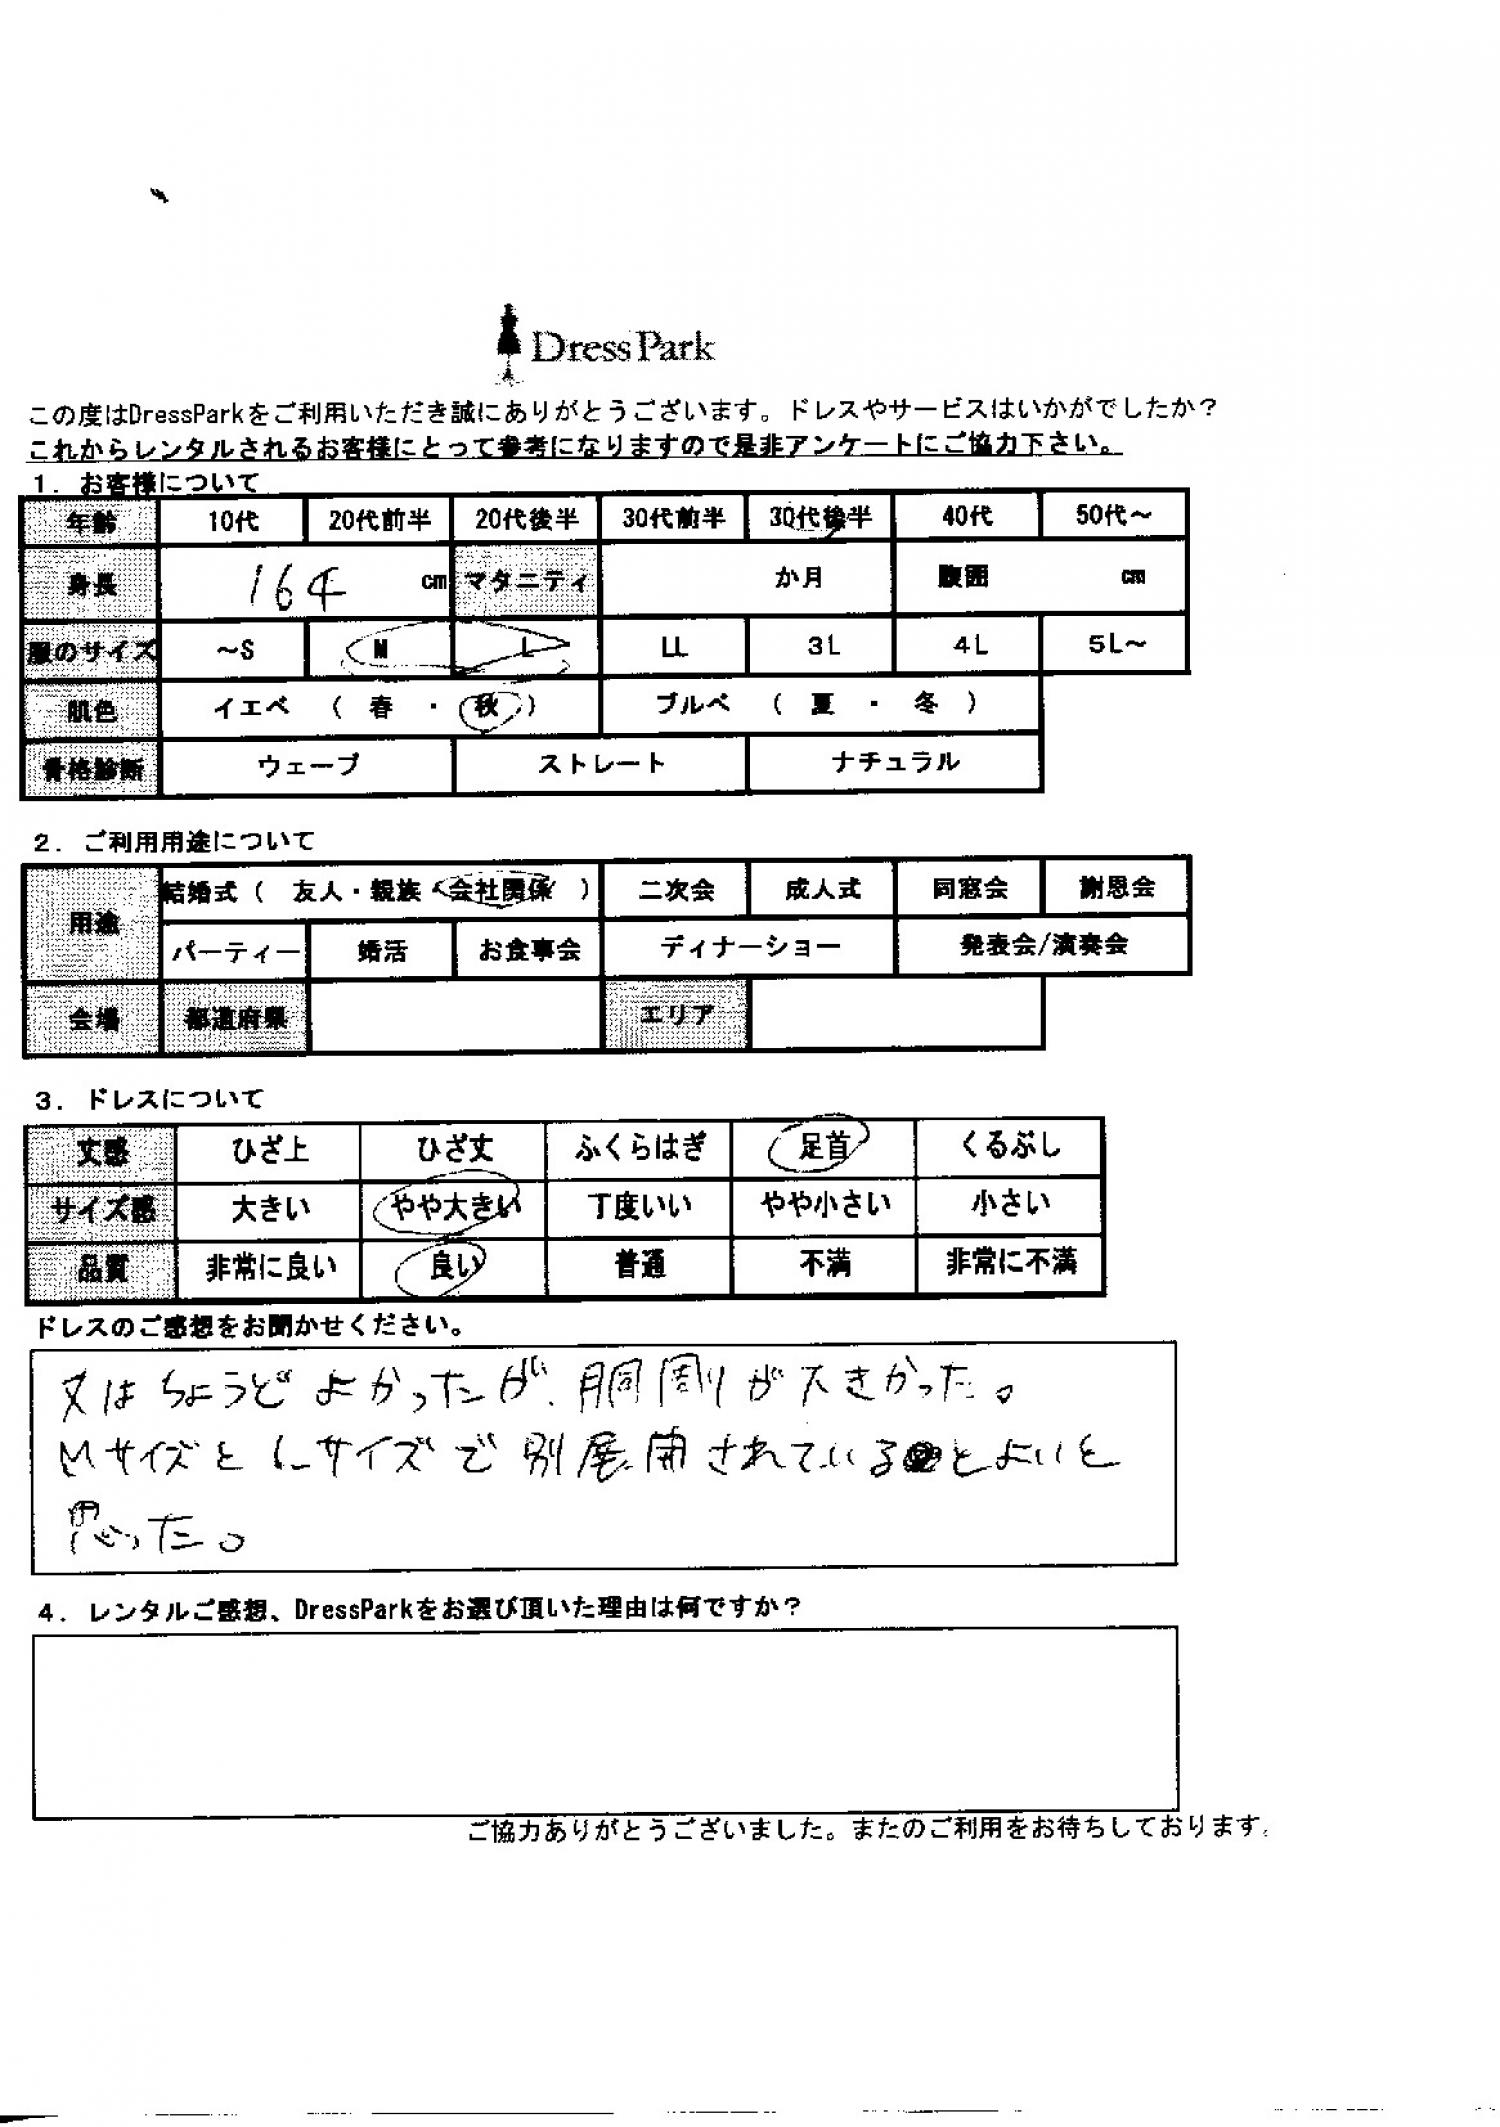 DressPark
この度はDressParkをご利用いただき誠にありがとうございます。ドレスやサービスはいかがでしたか？
これからレンタルされるお客様にとって参考になりますので是非アンケートにご協力下さい。
1．お客様について
年齢 10代 20代前半 20代後半 30代前半 30代後半 40代 50代～
身長 164 cm マタニティ か月 腹囲 cm
服のサイズ ～S M L LL 3L 4L 5L～
肌色 イエベ （ 春 ・ 秋 ） ブルベ （ 夏 ・ 冬 ）
骨格診断 ウェーブ ストレート ナチュラル
2．ご利用用途について
用途 結婚式（ 友人・親族・会社関係 ） 二次会 成人式 同窓会 謝恩会
パーティー 婚活 お食事会 ディナーショー 発表会/演奏会
会場 都道府県 エリア
3．ドレスについて
丈感 ひざ上 ひざ丈 ふくらはぎ 足首 くるぶし
サイズ感 大きい やや大きい 丁度いい やや小さい 小さい
品質 非常に良い 良い 普通 不満 非常に不満
ドレスのご感想をお聞かせください。
丈はちょうどよかったが、胴周りが大きかった。
MサイズとLサイズで別展開されているとよいと
思った。
4．レンタルご感想、DressParkをお選び頂いた理由は何ですか？
ご協力ありがとうございました。またのご利用をお待ちしております。